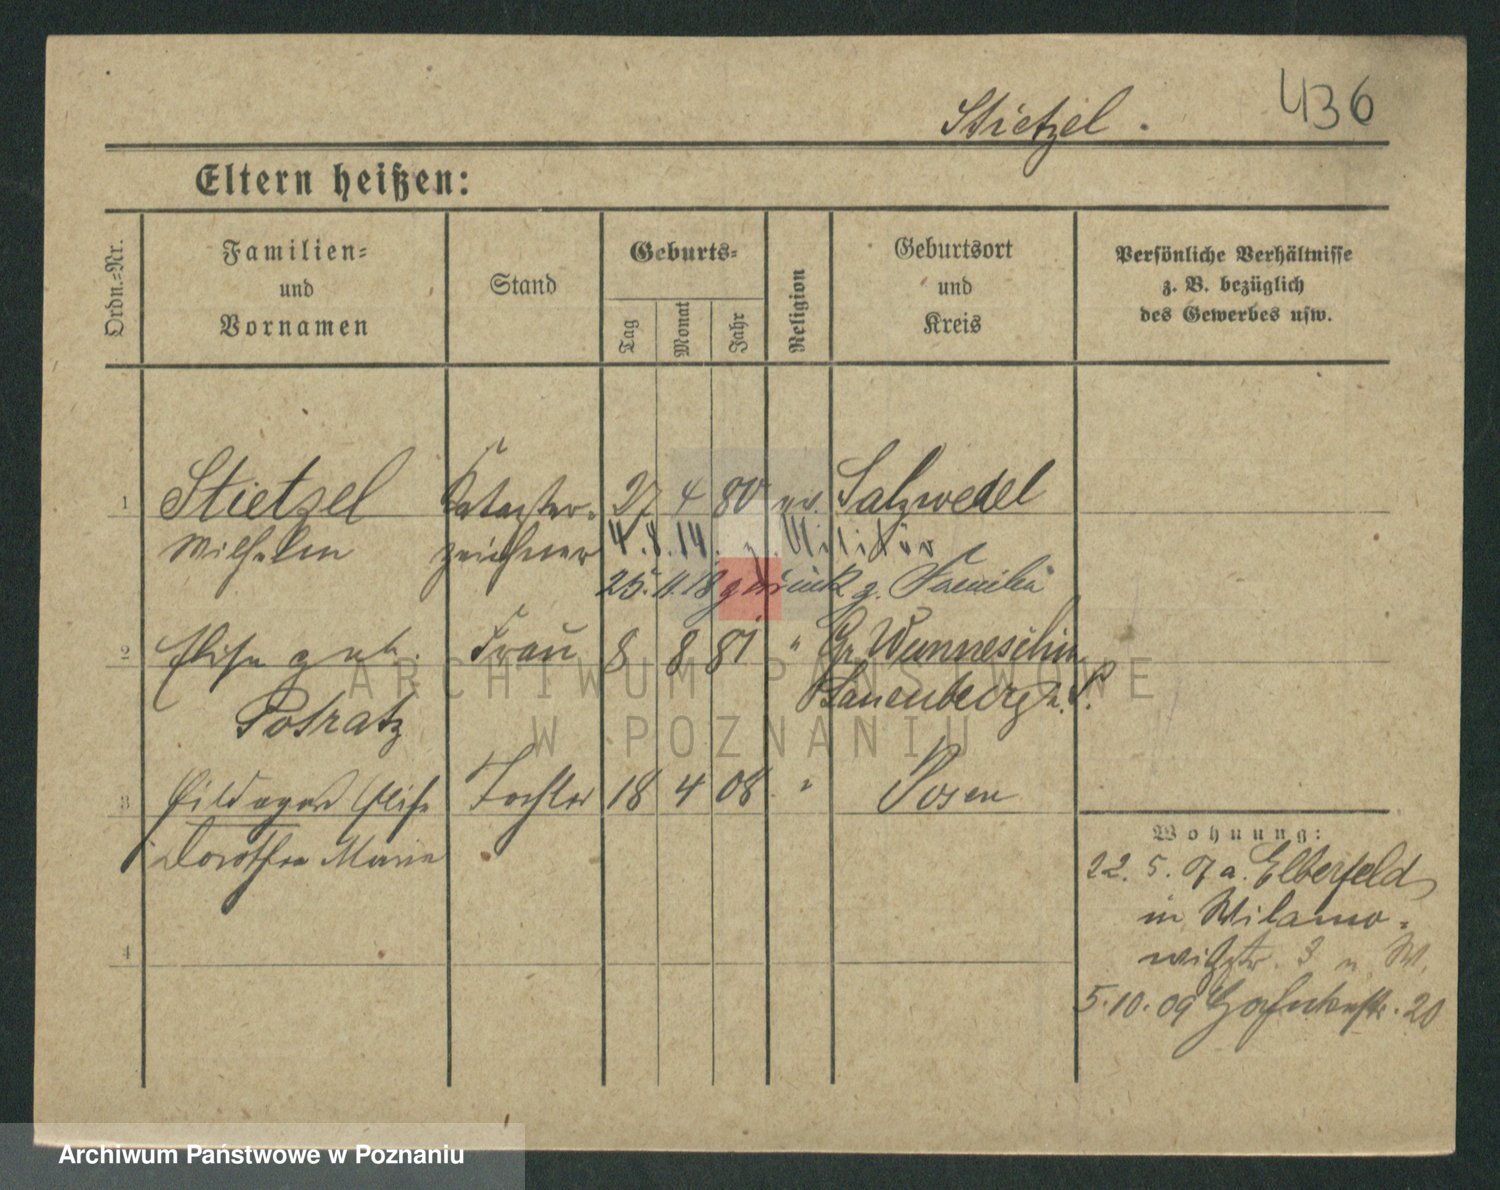 436
Stietzel.
Eltern heißen:
Ordn.-Nr.
Familien-
und
Vornamen
Stand
Geburts-
Tag
Monat
Jahr
Religion
Geburtsort
und
Kreis
Persönliche Verhältnisse
z. B. bezüglich
des Gewerbes usw.
1 Stietzel Kataster- 27 4 80 ev. Salzwedel
Wilhelm zeichner 4.8.14. z. Militär
25.11.18 zurück z. Familie
2 Elise geb. Frau 8 8 81 " Gr. Wunneschin
Lauenburg i. P.
Potratz
3 Hildegard Elise Tochter 18 4 08 " Posen
Dorothea Marie
4
Wohnung:
22. 5. 07 a. Elberfeld
in Wilamo-
witzstr. 3
5.10.09 20
ARCHIWUM PAŃSTWOWE
W POZNANIU
Archiwum Państwowe w Poznaniu